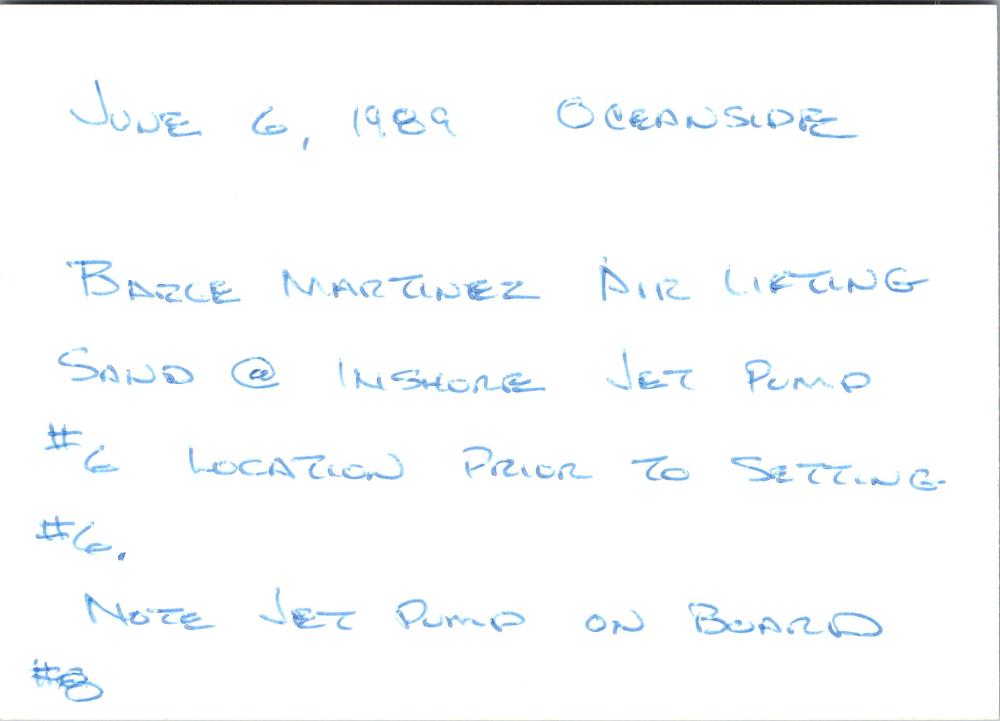 JUNE 6, 1989 OCEANSIDE
BARGE MARTINEZ AIR LIFTING
SAND @ INSHORE JET PUMP
#6 LOCATION PRIOR TO SETTING
#6.
NOTE JET PUMP ON BOARD
#8